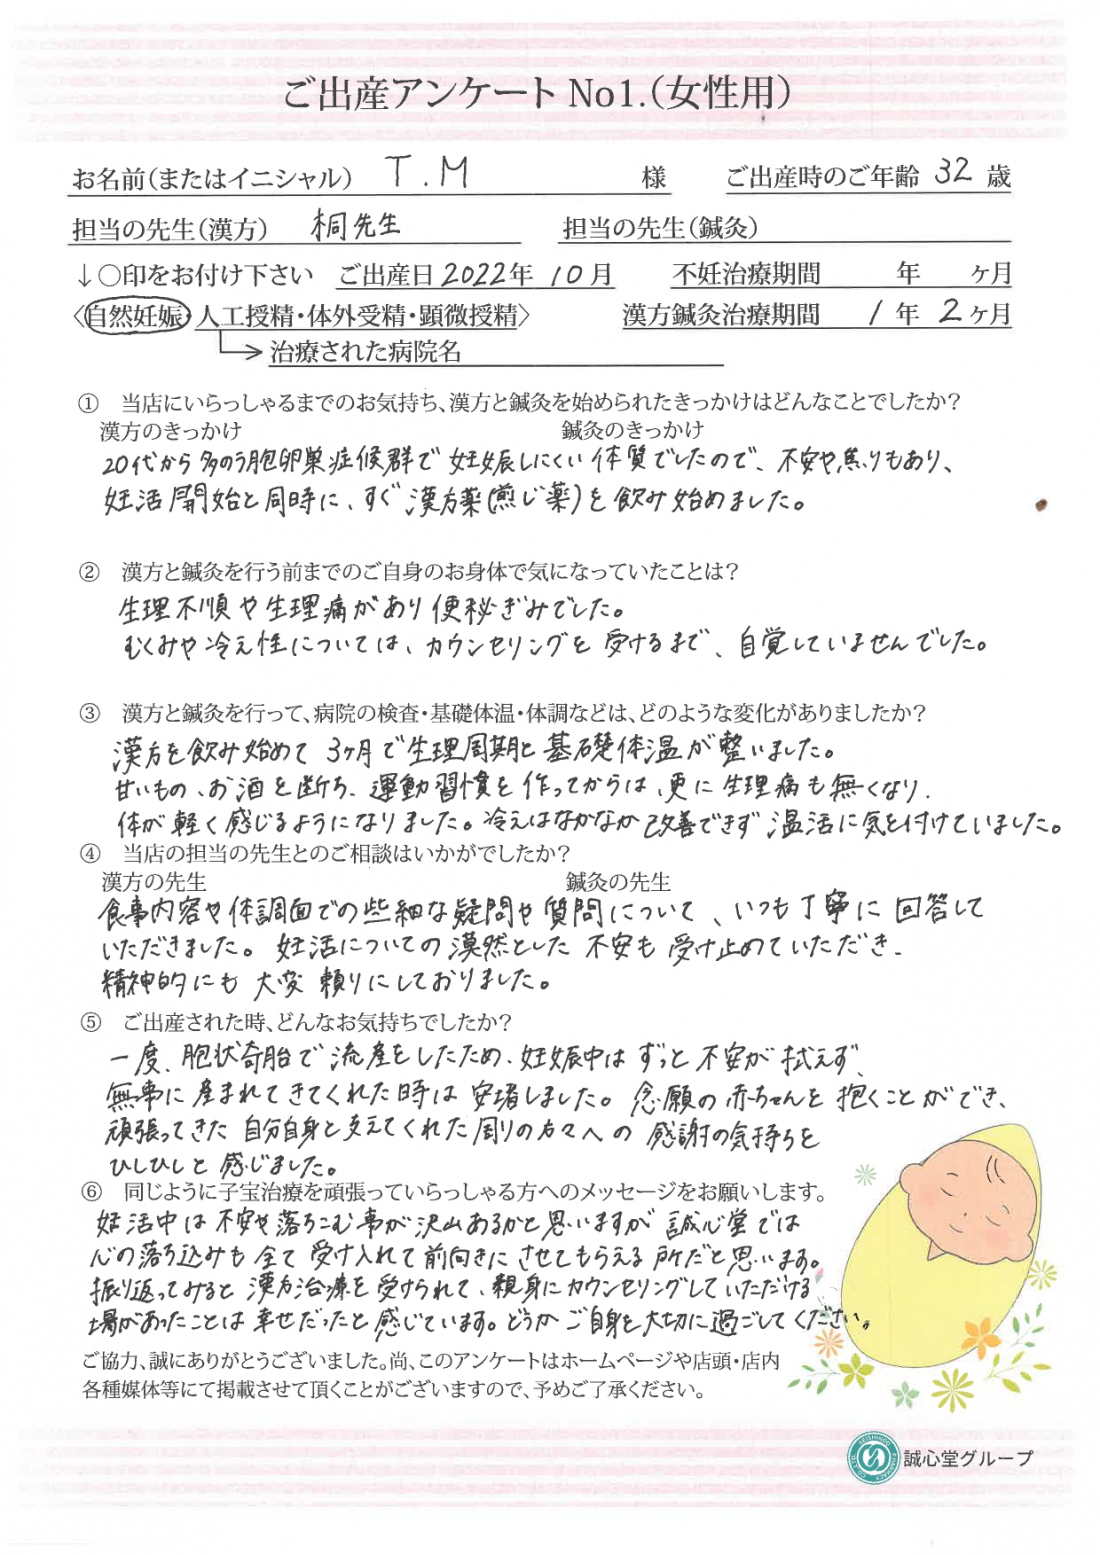 ご出産アンケート No1.(女性用)
お名前(またはイニシャル) T.M 様 ご出産時のご年齢 32 歳
担当の先生(漢方) 桐先生 担当の先生(鍼灸)
↓○印をお付け下さい ご出産日 2022年 10月 不妊治療期間 年 ヶ月
〈自然妊娠・人工授精・体外受精・顕微授精〉 漢方鍼灸治療期間 1年 2ヶ月
治療された病院名
① 当店にいらっしゃるまでのお気持ち、漢方と鍼灸を始められたきっかけはどんなことでしたか?
漢方のきっかけ 鍼灸のきっかけ
20代から多のう胞卵巣症候群で妊娠しにくい体質でしたので、不安や焦りもあり、
妊活開始と同時に、すぐ漢方薬(煎じ薬)を飲み始めました。
② 漢方と鍼灸を行う前までのご自身のお身体で気になっていたことは?
生理不順や生理痛があり便秘ぎみでした。
むくみや冷え性については、カウンセリングを受けるまで、自覚していませんでした。
③ 漢方と鍼灸を行って、病院の検査・基礎体温・体調などは、どのような変化がありましたか?
漢方を飲み始めて3ヶ月で生理周期と基礎体温が整いました。
甘いもの、お酒を断ち、運動習慣を作ってからは、更に生理痛も無くなり、
体が軽く感じるようになりました。冷えはなかなか改善できず温活に気を付けていました。
④ 当店の担当の先生とのご相談はいかがでしたか?
漢方の先生 鍼灸の先生
食事内容や体調面での些細な疑問や質問について、いつも丁寧に回答して
いただきました。妊活についての漠然とした不安も受け止めていただき、
精神的にも大変頼りにしておりました。
⑤ ご出産された時、どんなお気持ちでしたか?
一度、胞状奇胎で流産をしたため、妊娠中はずっと不安が拭えず、
無事に産まれてきてくれた時は安堵しました。念願の赤ちゃんを抱くことができ、
頑張ってきた自分自身と支えてくれた周りの方々への感謝の気持ちを
ひしひしと感じました。
⑥ 同じように子宝治療を頑張っていらっしゃる方へのメッセージをお願いします。
妊活中は不安や落ちこむ事が沢山あるかと思いますが誠心堂では
心の落ち込みも全て受け入れて前向きにさせてもらえる所だと思います。
振り返ってみると漢方治療を受けられて、親身にカウンセリングしていただける
場があったことは幸せだったと感じています。どうかご自身を大切に過ごしてください。
ご協力、誠にありがとうございました。尚、このアンケートはホームページや店頭・店内
各種媒体等にて掲載させて頂くことがございますので、予めご了承ください。
誠心堂グループ